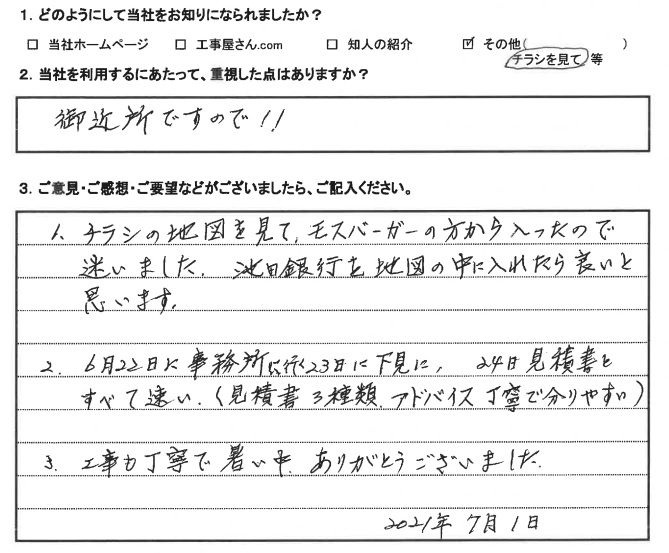 1. どのようにして当社をお知りになられましたか？
□ 当社ホームページ □ 工事屋さん.com □ 知人の紹介 ☑ その他( )
チラシを見て 等
2. 当社を利用するにあたって、重視した点はありますか？
御近所ですので!!
3. ご意見・ご感想・ご要望などがございましたら、ご記入ください。
1. チラシの地図を見て、モスバーガーの方から入ったので
迷いました。池田銀行を地図の中に入れたら良いと
思います。
2. 6月22日に事務所に行く23日に下見に、24日見積書と
すべて速い.(見積書3種類.アドバイス丁寧で分りやすい)
3. 工事も丁寧で暑い中.ありがとうございました.
2021年7月1日